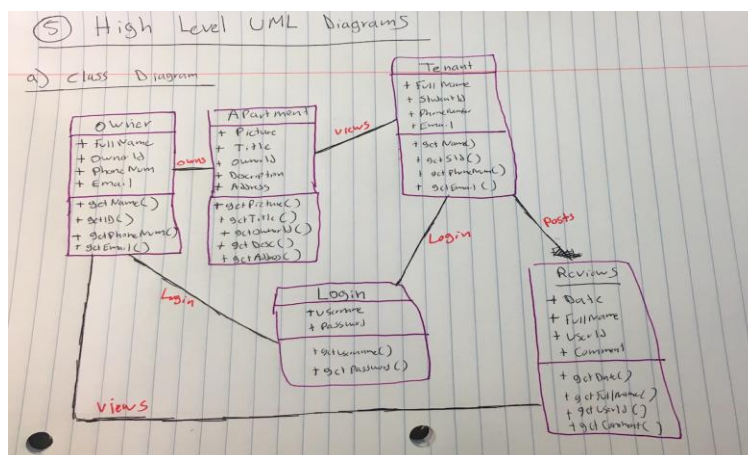 5 High Level UML Diagrams
a) Class Diagram
Owner
+ FullName
+ OwnerId
+ PhoneNum
+ Email
+ getName()
+ getID()
+ getPhoneNum()
+ getEmail()
owns
Apartment
+ Picture
+ Title
+ OwnerId
+ Description
+ Address
+ getPicture()
+ getTitle()
+ getOwnerId()
+ getDesc()
+ getAddres()
views
Tenant
+ Full Name
+ StudentId
+ PhoneNumber
+ Email
+ getName()
+ getSId()
+ getPhoneNum()
+ getEmail()
Login
Login
Posts
Login
+ Username
+ Password
+ getUsername()
+ getPassword()
Reviews
+ Date
+ FullName
+ UserId
+ Comment
+ getDate()
+ getFullName()
+ getUserId()
+ getComment()
Views